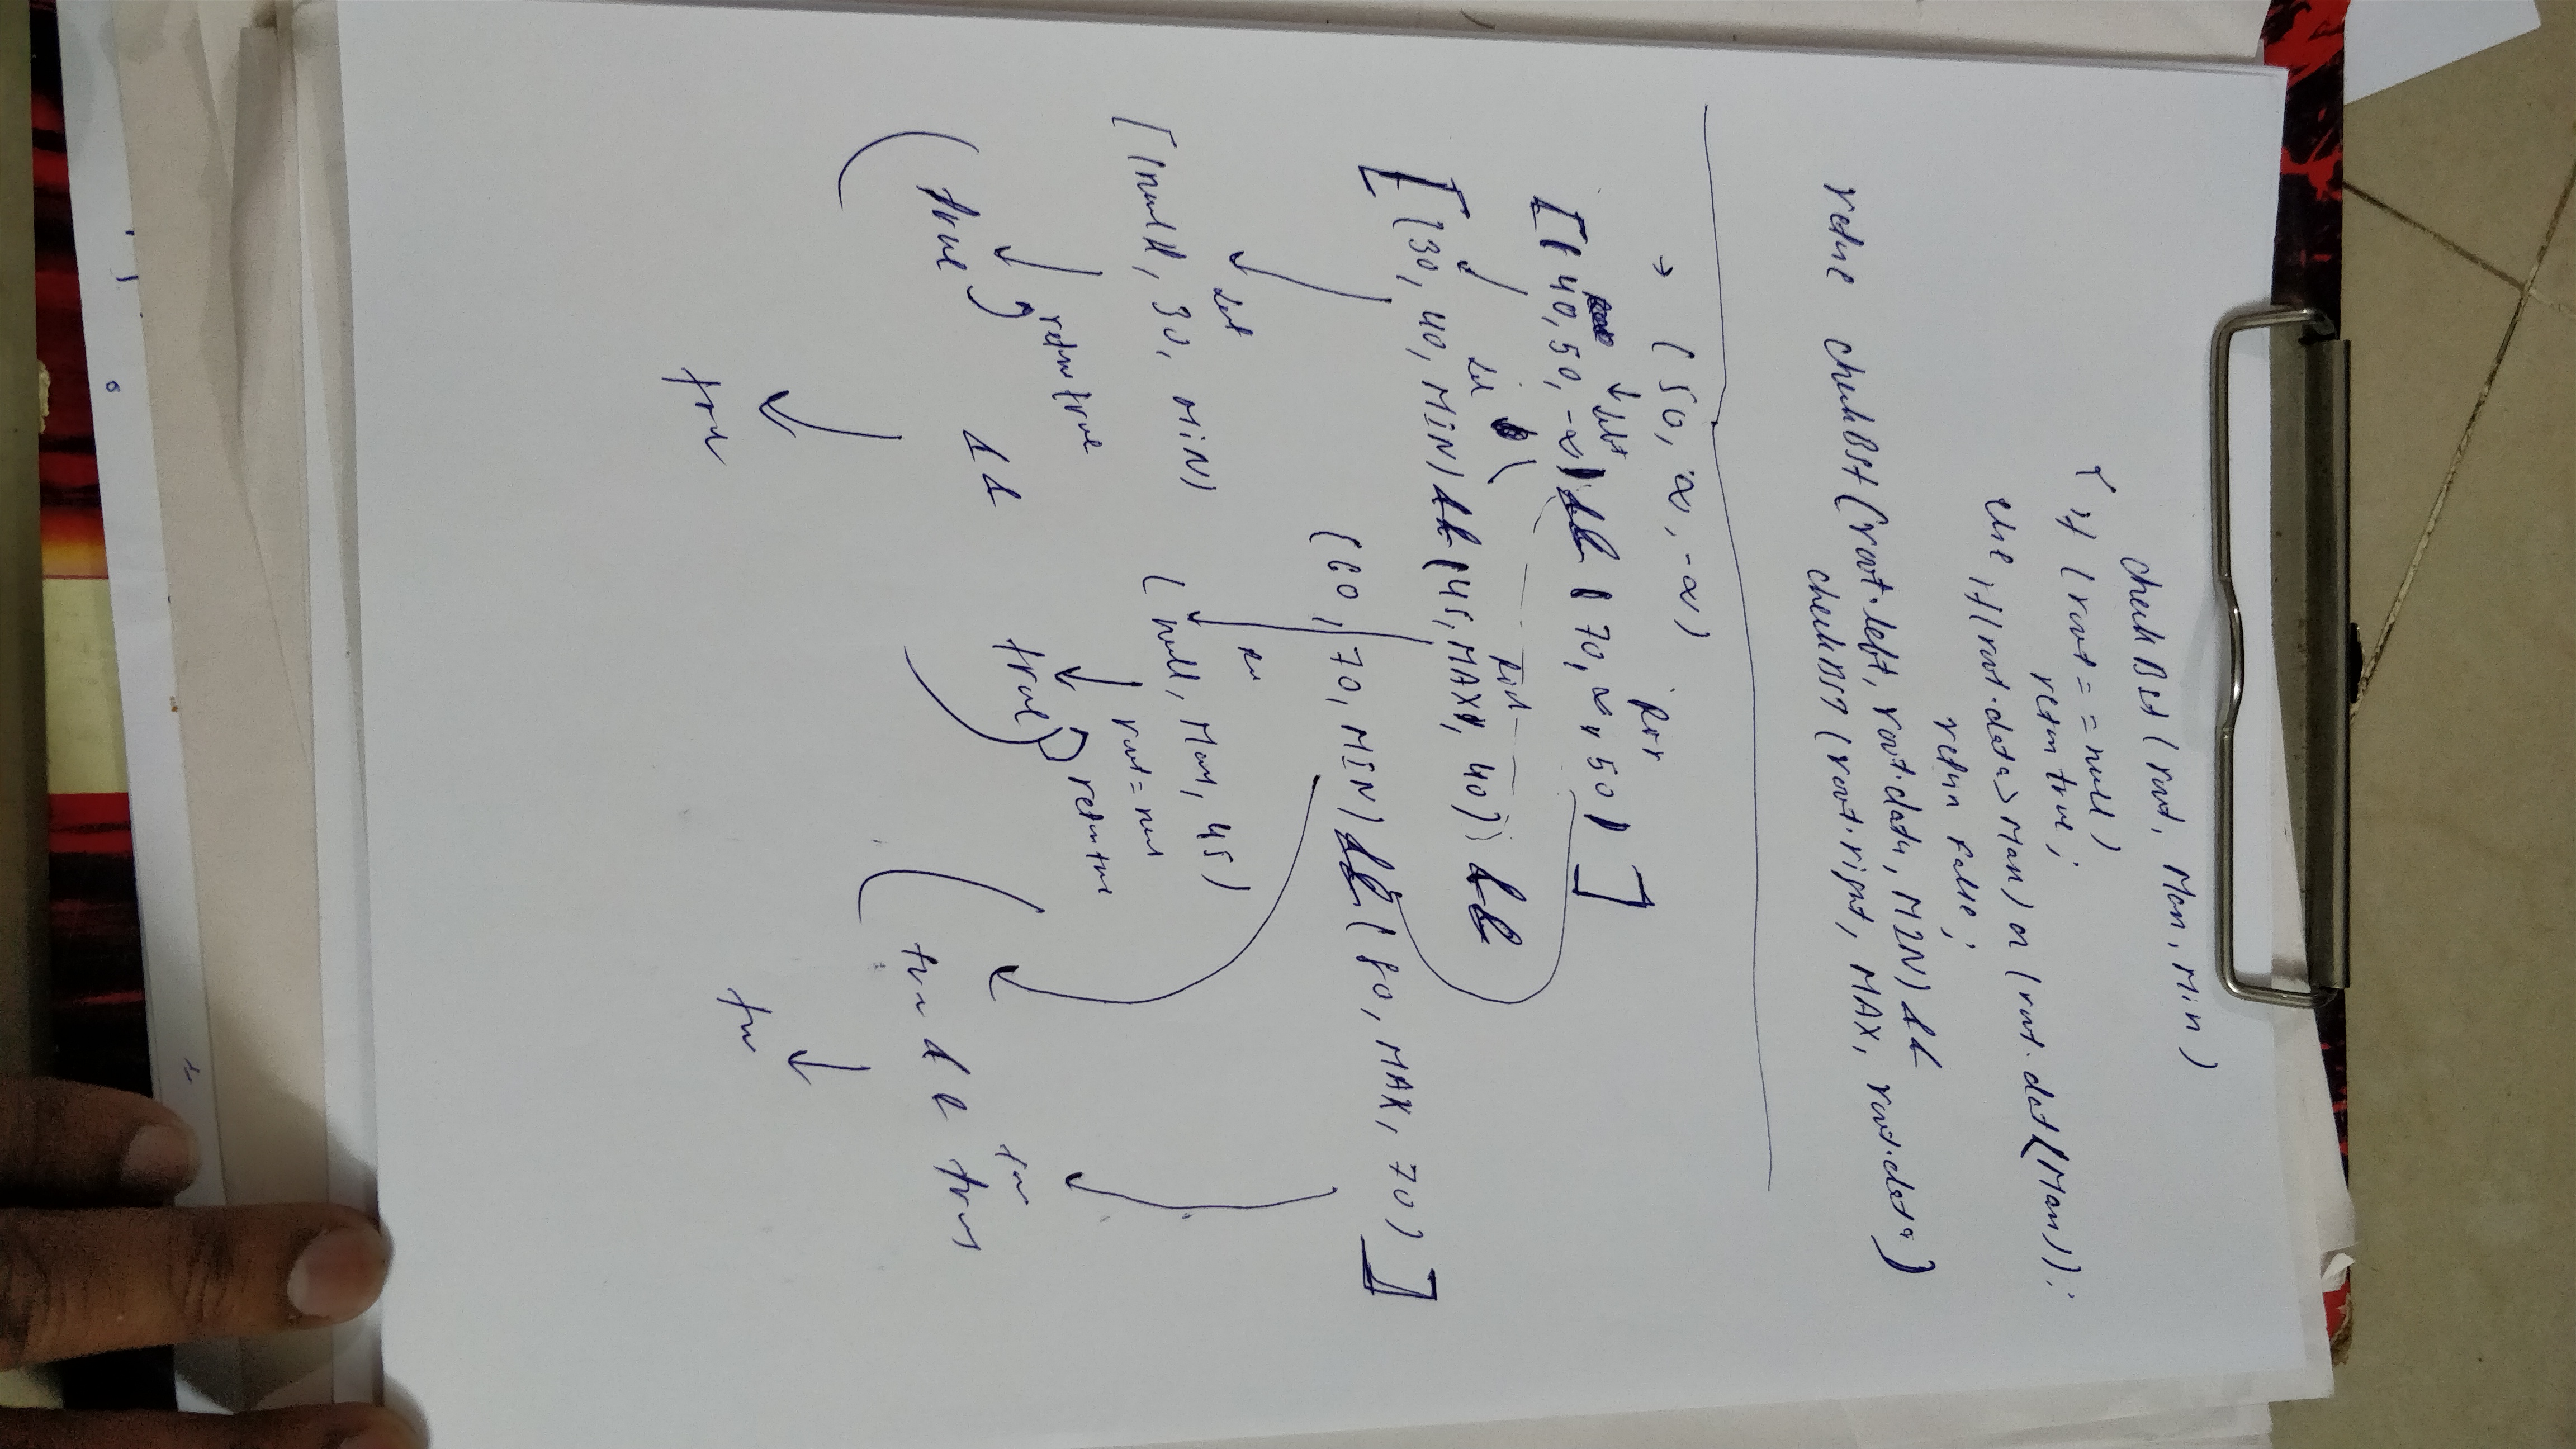 checkBst (root, Max, Min)
{ if (root == null)
return true;
else if (root.data > Max) or (root.dat < Max));
return false;
return checkBst (root.left, root.data, MIN) &&
checkBST (root.right, MAX, root.data)
→ (50, ∞, -∞)
Left
[(40, 50, -∞) && (70, ∞, 50)]
[(30, 40, MIN) && (45, MAX, 40) &&
(60, 70, MIN) && (80, MAX, 70)]
Left
[(null, 30, MIN) (null, Max, 45)
root = null
return true return true
true && true
true && true
true